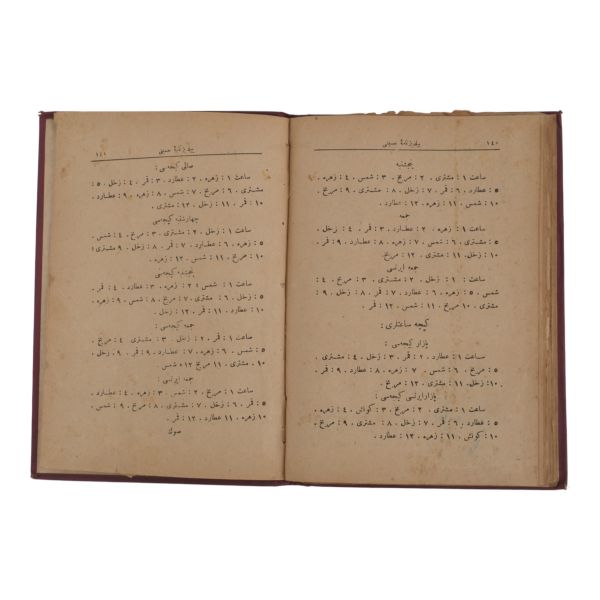 ١٤٠ ییلدیزنامهٔ حسینی
پنجشنبه
ساعت ١ : مشتری . ٢ : مریخ . ٣ : شمس . ٤ : زهره .
٥ : عطارد . ٦ : قمر . ٧ : زحل . ٨ : مشتری . ٩ : مریخ .
١٠ : شمس . ١١ : زهره . ١٢ : عطارد .
جمعه
ساعت ١ : زهره . ٢ : عطارد . ٣ : قمر . ٤ : زحل .
٥ : مشتری . ٦ : شمس . ٧ : شمس . ٨ : زهره . ٩ : قمر .
١٠ : زحل . ١١ : مشتری . ١٢ : مریخ.
جمعه ایرتسی
ساعت : ١ : زحل . ٢ : مشتری . ٣ : مریخ . ٤ :
شمس . ٥ : زهره . ٦ : عطارد . ٧ : قمر . ٨ : زحل . ٩ :
مشتری . ١٠ : مریخ . ١١ : شمس . ١٢ : زهره .
کیجه ساعتلری :
بازار کیجه‌سی :
ساعت ١ : عطارد . ٢ : قمر . ٣ : زحل . ٤ : مشتری .
٥ : مریخ . ٦ : شمس . ٧ : زهره . ٨ : عطارد . ٩ : قمر .
١٠ : زحل . ١١ : مشتری . ١٢ : مریخ.
بازارایرتسی کیجه‌سی :
ساعت ١ : مشتری . ٢ : مریخ . ٣ : کونش . ٤ : زهره .
٥ : عطارد . ٦ : قمر . ٧ : زحل . ٨ : مشتری . ٩ : مریخ .
١٠ : کونش . ١١ : زهره . ١٢ : عطارد .
ییلدیزنامهٔ حسینی ١٤١
صالی کیجه‌سی :
ساعت ١ : زهره . ٢ : عطارد . ٣ : قمر . ٤ : زحل . ٥ :
مشتری . ٦ : مریخ . ٧ : شمس . ٨ : زهره . ٩ : عطارد .
١٠ : قمر . ١١ : زحل . ١٢ : مشتری .
چهارشنبه کیجه‌سی
ساعت ١ : زحل . ٢ : مشتری . ٣ : مریخ . ٤ : شمس .
٥ : زهره . ٦ : عطارد . ٧ : قمر . ٨ : زحل . ٩ مشتری :
١٠ : مریخ . ١١ : شمس . ١٢ : زهره .
پنجشنبه کیجه‌سی
ساعت ١ : شمس : ٢ : زهره . ٣ : عطارد . ٤ : قمر .
٥ : زحل . ٦ : مشتری . ٧ : مریخ . ٨ : شمس . ٩ : زهره .
١٠ : عطارد . ١١ : قمر . ١٢ : زحل .
جمعه کیجه‌سی :
ساعت ١ : قمر . ٢ : زحل . ٣ : مشتری ٤ : مریخ .
٥ : شمس . ٦ : زهره . ٧ : عطارد . ٨ : قمر . ٩ : زحل .
١٠ : مشتری . ١١ : مریخ ١٢ : شمس
جمعه ایرتسی :
ساعت ١ : مریخ . ٢ : شمس . ٣ : زهره . ٤ : عطارد .
٥ : قمر . ٦ : زحل . ٧ : مشتری . ٨ : مریخ . ٩ : شمس .
١٠ زهره . ١١ عطارد . ١٢ : قمر .
صوك